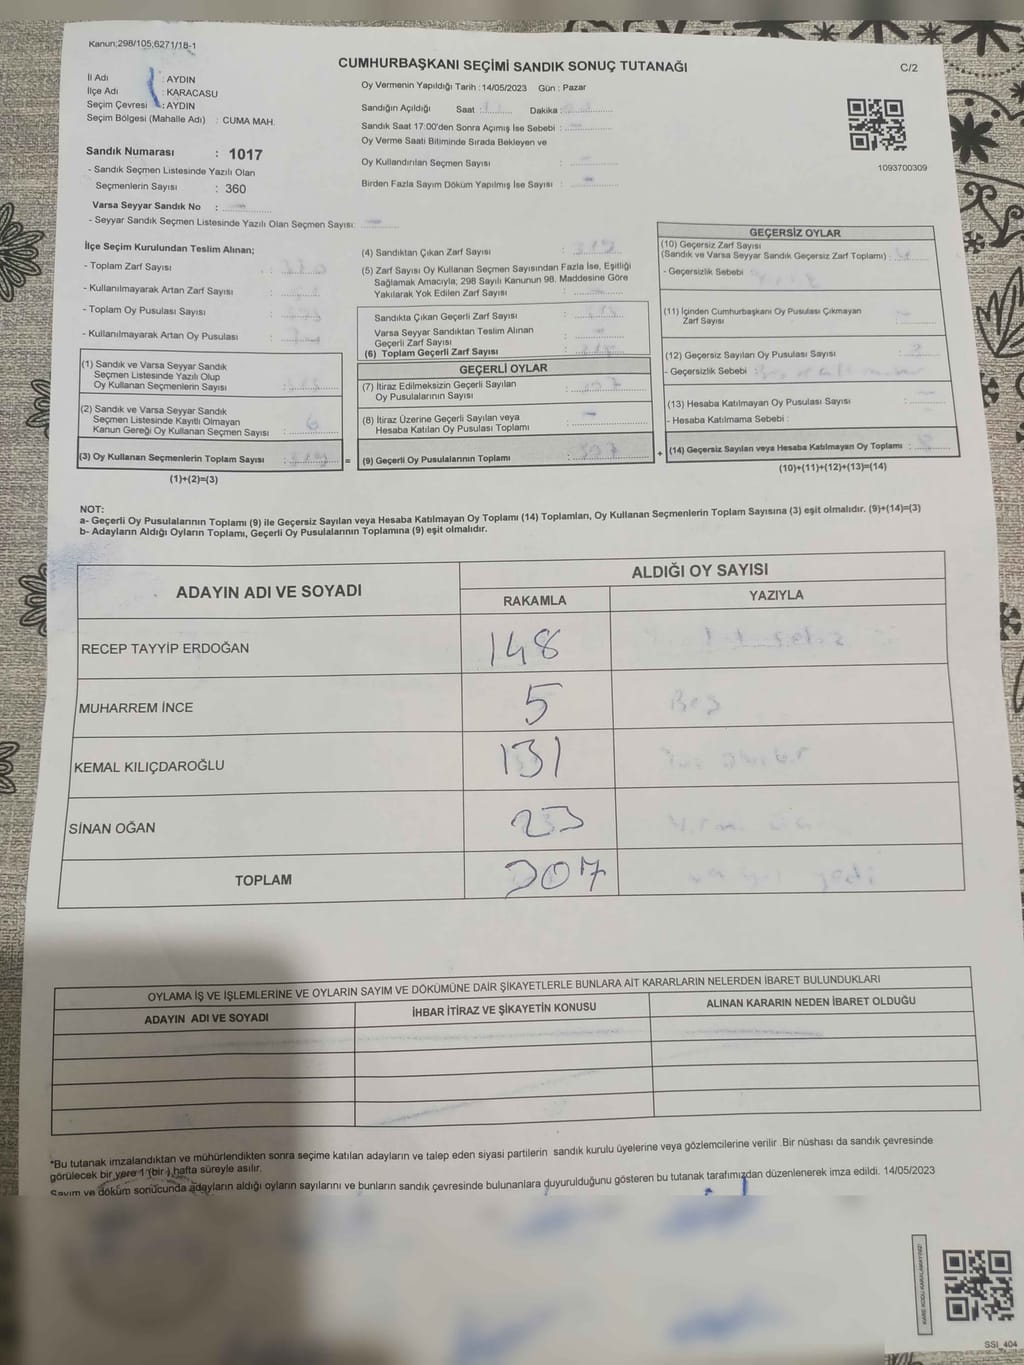 Kanun;298/105;6271/18-1
CUMHURBAŞKANI SEÇİMİ SANDIK SONUÇ TUTANAĞI
C/2
İl Adı : AYDIN
İlçe Adı : KARACASU
Seçim Çevresi : AYDIN
Seçim Bölgesi (Mahalle Adı) : CUMA MAH.
Sandık Numarası : 1017
- Sandık Seçmen Listesinde Yazılı Olan
Seçmenlerin Sayısı : 360
Varsa Seyyar Sandık No :
- Seyyar Sandık Seçmen Listesinde Yazılı Olan Seçmen Sayısı:
Oy Vermenin Yapıldığı Tarih : 14/05/2023 Gün : Pazar
Sandığın Açıldığı Saat : Dakika :
Sandık Saat 17:00'den Sonra Açımış İse Sebebi :
Oy Verme Saati Bitiminde Sırada Bekleyen ve
Oy Kullandırılan Seçmen Sayısı :
Birden Fazla Sayım Döküm Yapılmış İse Sayısı :
1093700309
İlçe Seçim Kurulundan Teslim Alınan;
- Toplam Zarf Sayısı :
- Kullanılmayarak Artan Zarf Sayısı :
- Toplam Oy Pusulası Sayısı :
- Kullanılmayarak Artan Oy Pusulası :
(1) Sandık ve Varsa Seyyar Sandık
Seçmen Listesinde Yazılı Olup
Oy Kullanan Seçmenlerin Sayısı :
(2) Sandık ve Varsa Seyyar Sandık
Seçmen Listesinde Kayıtlı Olmayan
Kanun Gereği Oy Kullanan Seçmen Sayısı : 6
(3) Oy Kullanan Seçmenlerin Toplam Sayısı : =
(1)+(2)=(3)
(4) Sandıktan Çıkan Zarf Sayısı :
(5) Zarf Sayısı Oy Kullanan Seçmen Sayısından Fazla İse, Eşitliği
Sağlamak Amacıyla; 298 Sayılı Kanunun 98. Maddesine Göre
Yakılarak Yok Edilen Zarf Sayısı :
Sandıkta Çıkan Geçerli Zarf Sayısı :
Varsa Seyyar Sandıktan Teslim Alınan
Geçerli Zarf Sayısı :
(6) Toplam Geçerli Zarf Sayısı :
GEÇERLİ OYLAR
(7) İtiraz Edilmeksizin Geçerli Sayılan
Oy Pusulalarının Sayısı : 307
(8) İtiraz Üzerine Geçerli Sayılan veya
Hesaba Katılan Oy Pusulası Toplamı :
(9) Geçerli Oy Pusulalarının Toplamı : 307 +
GEÇERSİZ OYLAR
(10) Geçersiz Zarf Sayısı
(Sandık ve Varsa Seyyar Sandık Geçersiz Zarf Toplamı) :
- Geçersizlik Sebebi :
(11) İçinden Cumhurbaşkanı Oy Pusulası Çıkmayan
Zarf Sayısı :
(12) Geçersiz Sayılan Oy Pusulası Sayısı :
- Geçersizlik Sebebi :
(13) Hesaba Katılmayan Oy Pusulası Sayısı :
- Hesaba Katılmama Sebebi :
(14) Geçersiz Sayılan veya Hesaba Katılmayan Oy Toplamı :
(10)+(11)+(12)+(13)=(14)
NOT:
a- Geçerli Oy Pusulalarının Toplamı (9) ile Geçersiz Sayılan veya Hesaba Katılmayan Oy Toplamı (14) Toplamları, Oy Kullanan Seçmenlerin Toplam Sayısına (3) eşit olmalıdır. (9)+(14)=(3)
b- Adayların Aldığı Oyların Toplamı, Geçerli Oy Pusulalarının Toplamına (9) eşit olmalıdır.
ADAYIN ADI VE SOYADI
ALDIĞI OY SAYISI
RAKAMLA YAZIYLA
RECEP TAYYİP ERDOĞAN 148
MUHARREM İNCE 5 Beş
KEMAL KILIÇDAROĞLU 131
SİNAN OĞAN 23
TOPLAM 307 yedi
OYLAMA İŞ VE İŞLEMLERİNE VE OYLARIN SAYIM VE DÖKÜMÜNE DAİR ŞİKAYETLERLE BUNLARA AİT KARARLARIN NELERDEN İBARET BULUNDUKLARI
ADAYIN ADI VE SOYADI İHBAR İTİRAZ VE ŞİKAYETİN KONUSU ALINAN KARARIN NEDEN İBARET OLDUĞU
*Bu tutanak imzalandıktan ve mühürlendikten sonra seçime katılan adayların ve talep eden siyasi partilerin sandık kurulu üyelerine veya gözlemcilerine verilir .Bir nüshası da sandık çevresinde
görülecek bir yere 1 (bir ) hafta süreyle asılır.
Sayım ve döküm sonucunda adayların aldığı oyların sayılarını ve bunların sandık çevresinde bulunanlara duyurulduğunu gösteren bu tutanak tarafımızdan düzenlenerek imza edildi. 14/05/2023
SSI_404